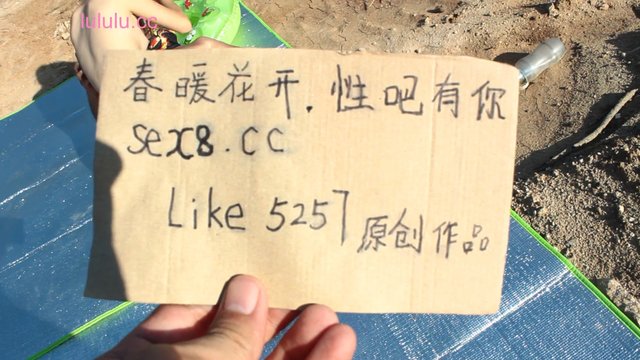 lululu.cc
春暖花开.性吧有你
sex8.cc
Like 5257 原创作品